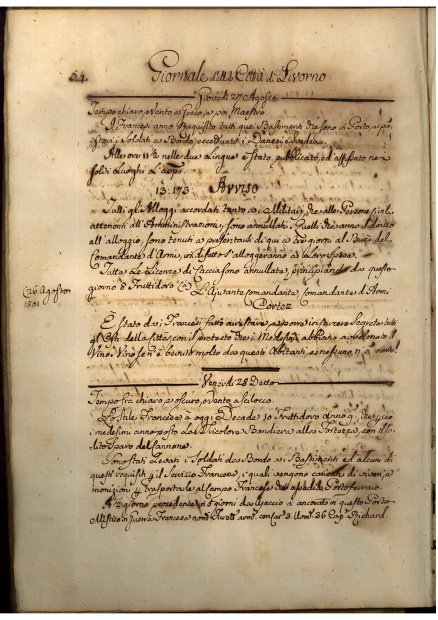 54. Giornale della Città di Livorno
Giovedì 27 Agosto
Tempo chiaro, e Vento a Greco, e poi Maestro.
I Francesi anno requisito tutti que Bastimenti che sono in Porto, e po-
stati i Soldati a Bordo, eccettuati i Danesi, e Svedesi.
Alle ore 11½ nelle due Lingue è stato pubblicato, ed affissato ne
soliti Luoghi
13: 173: Avviso
Tutti gli Alloggi accordati tanto a i Militari, che alle Persone civili
attenenti all' Amministrazione, sono annullati. Quelli che anno diritto
all' alloggio, sono tenuti a presentarsi di qui a tre giorni al
Comandante d'Armi, in difetto s'alloggeranno a loro spese.
Tutte Le Licenze di Caccia sono annullate, principiando da questo
giorno 8 Fruttidoro L'Ajutante comandante Comandante d'Armi
26 Agosto
1801
Cortez
E stato da i Francesi fatto
gl' Osti della Città, con il pretesto che i abbino avvelenato il
Vino. Vino se n'è bevuto molto da questi Abitanti, e nessuno n'è morto!
Venerdì 28 Detto
Tempo fra chiaro, e oscuro, e vento a Scilocco.
Lo Stile Francese è oggi Decade 10 Fruttidoro Anno 9, che
medesimi anno posto La Tricolore Bandiera alla Fortezza, con il So-
lito Sparo del Cannone.
Sono stati Levati i Soldati da Bordo a i Bastimenti, ed alcuni di
questi requisiti p il Servizio Francese, i quali vengono caricati di viveri, e
monizioni p trasportarle al Campo Francese che assedia Portoferraio.
A 2 giorno procedente in 5 giorni da Ajaccio à ancorato in questo Porto
Mistico in Guerra Francese nom Rivoll arm. con Can. 3. Uom. 36 Cap. Richard.